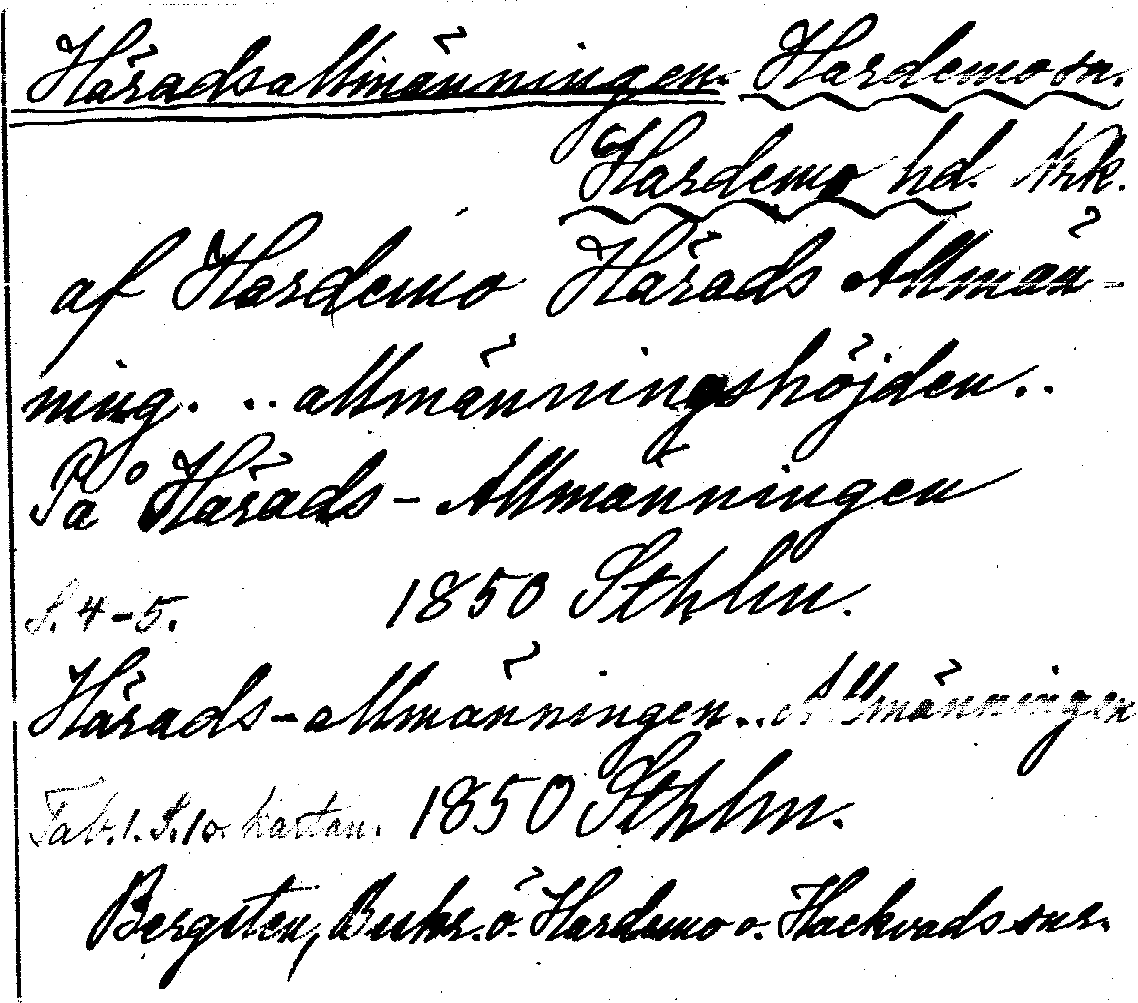 Häradsallmänningen. Hardemo sn.
Hardemo hd. Nrk.
af Hardemo Härads Allmän-
ning. .. allmänningshöjden..
På Härads-Allmänningen
S. 4-5. 1850 Sthlm.
Härads-allmänningen.. Allmänningen
Tab. 1. S. 10. kartan. 1850 Sthlm.
Bergsten, Beskr. ö. Hardemo o. Hackvads snr.